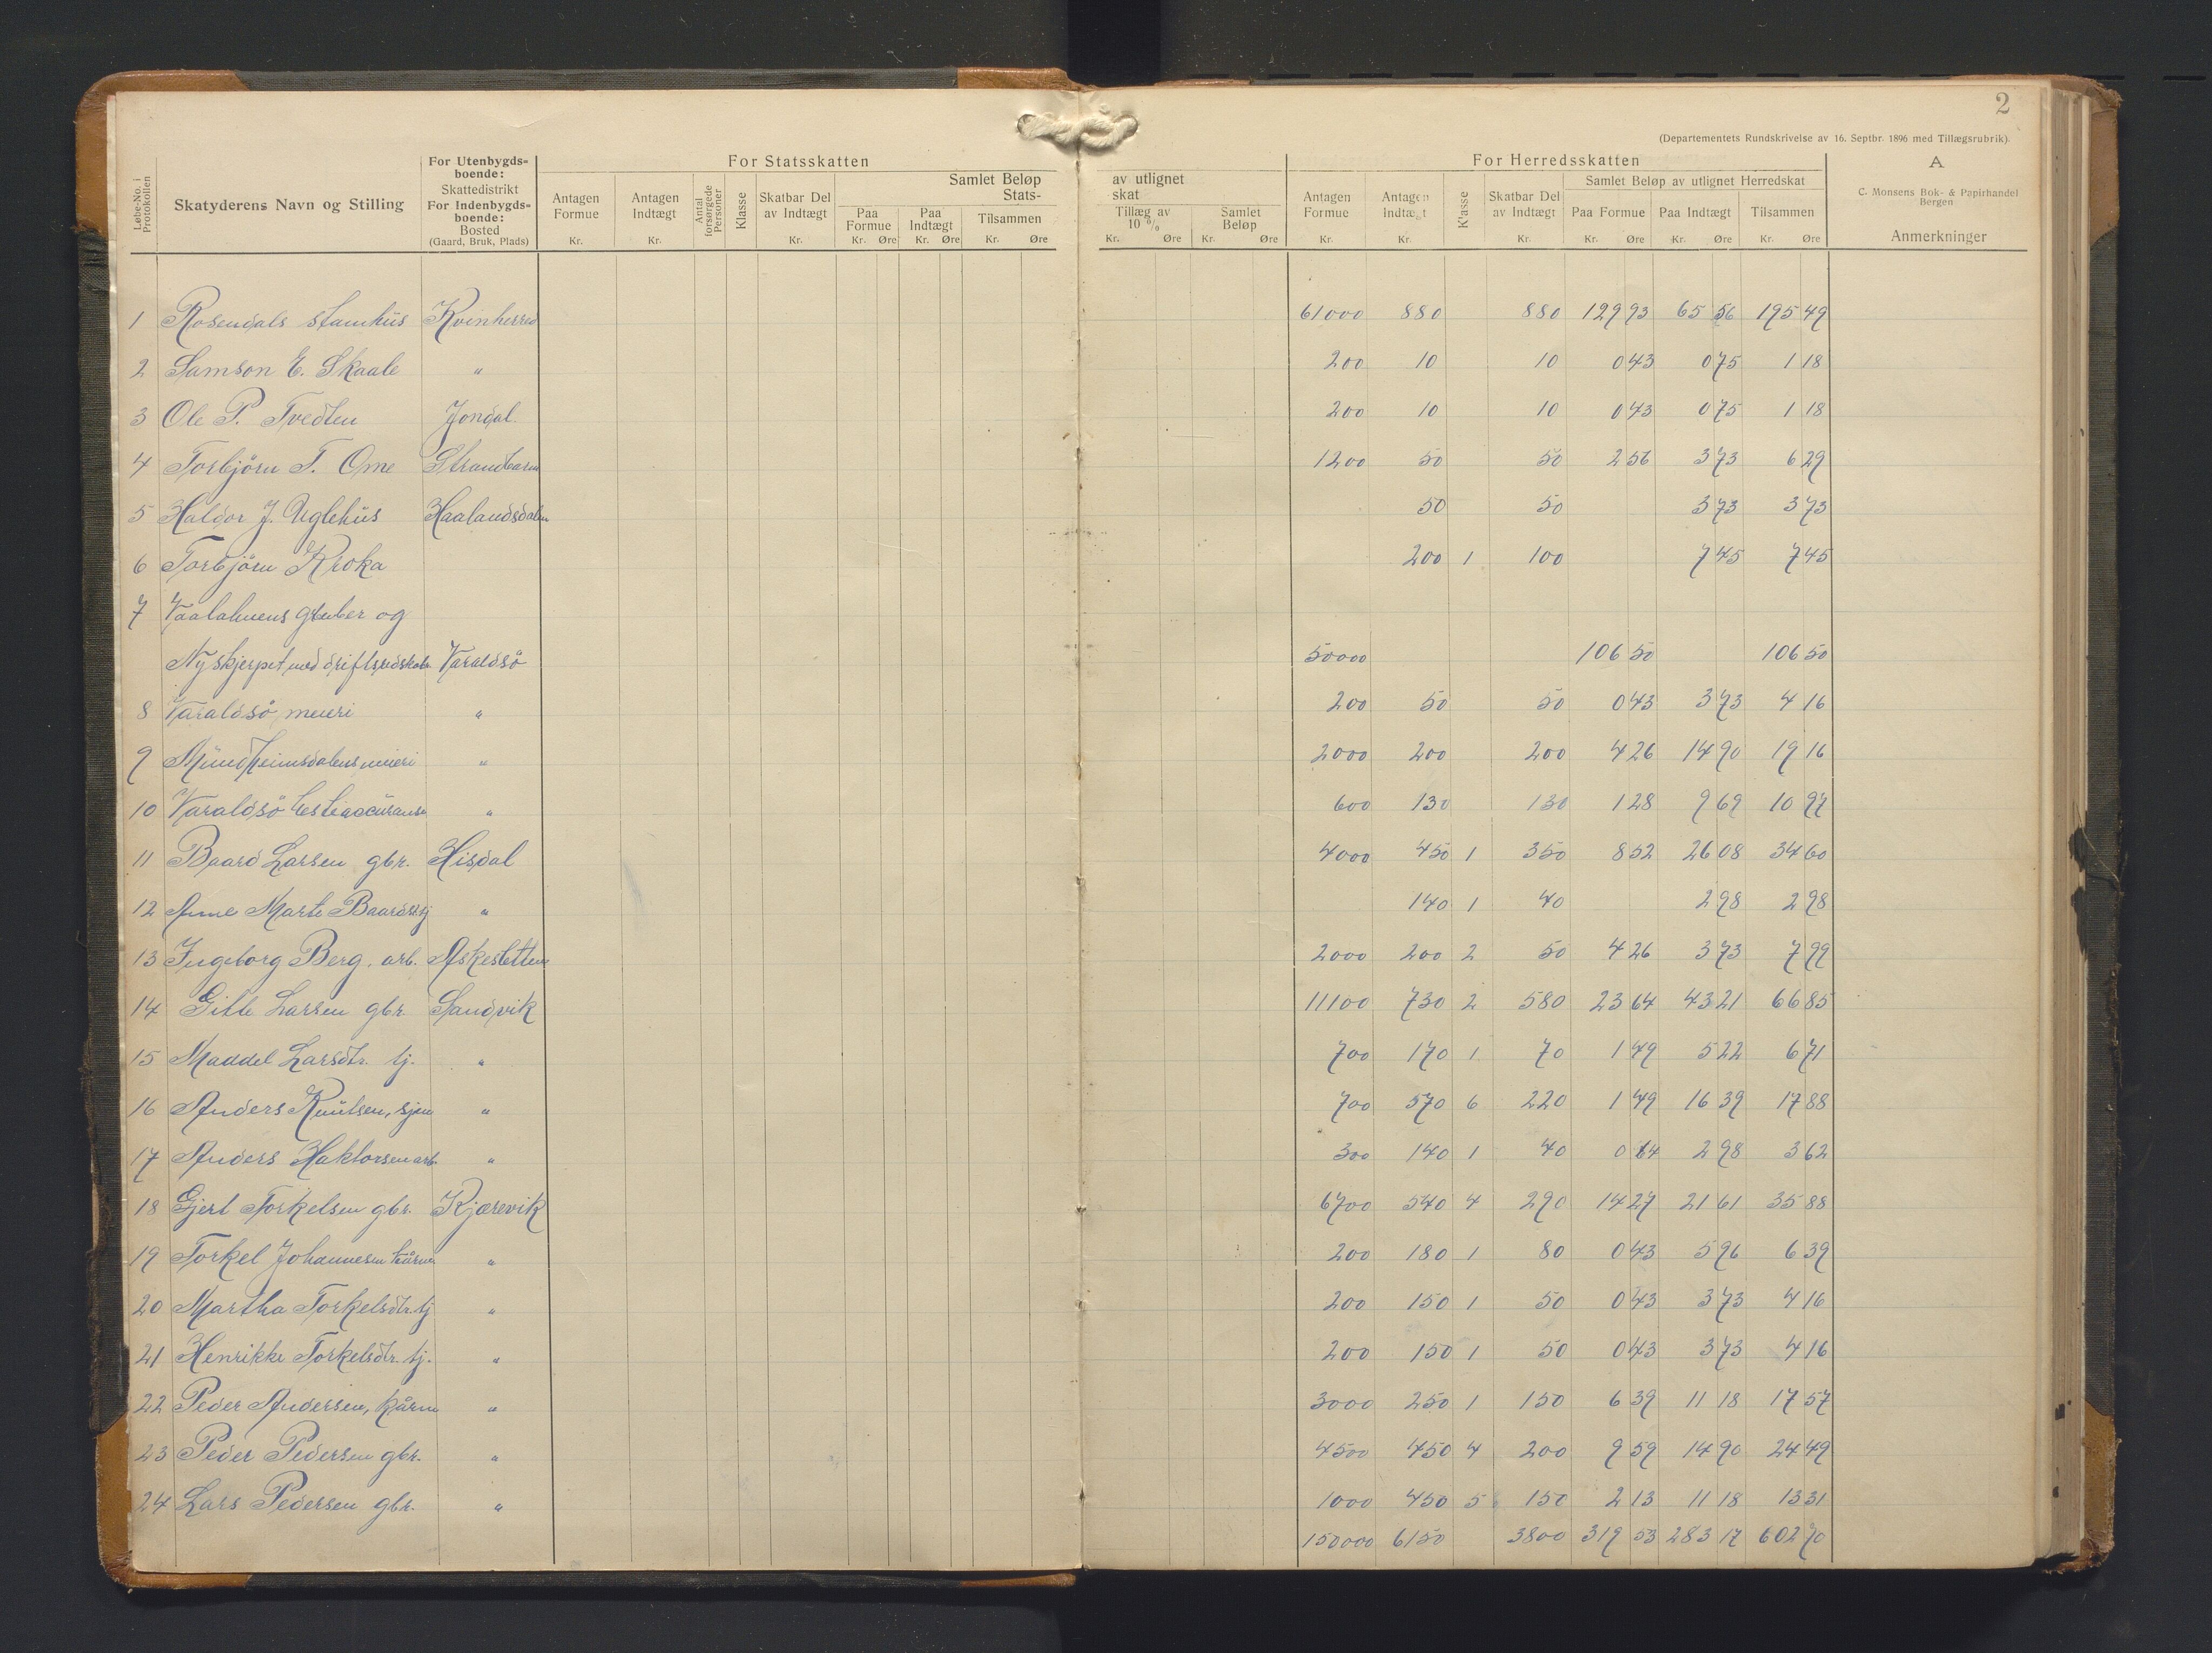 2
(Departementets Rundskrivelse av 16. Septbr. 1896 med Tillægsrubrik).
Løbe-No. i Protokollen
Skatyderens Navn og Stilling
For Utenbygdsboende: Skattedistrikt
For Indenbygdsboende: Bosted (Gaard, Bruk, Plads)
For Statsskatten
Antagen Formue Kr.
Antagen Indtægt Kr.
Antal forsørgede Personer
Klasse
Skatbar Del av Indtægt Kr.
Samlet Beløp av utlignet Stats-skat
Paa Formue Kr. Øre
Paa Indtægt Kr. Øre
Tilsammen Kr. Øre
Tillæg av 10 % Kr. Øre
Samlet Beløp Kr. Øre
For Herredsskatten
Antagen Formue Kr.
Antagen Indtægt Kr.
Klasse
Skatbar Del av Indtægt Kr.
Samlet Beløp av utlignet Herredskat
Paa Formue Kr. Øre
Paa Indtægt Kr. Øre
Tilsammen Kr. Øre
A
C. Monsens Bok- & Papirhandel
Bergen
Anmerkninger
1 Rosendals stamhus Kvinherred 61000 880 880 129 93 65 56 195 49
2 Samson E. Skaale " 200 10 10 0 43 0 75 1 18
3 Ole P. Tvedten Jondal 200 10 10 0 43 0 75 1 18
4 Torbjörn T. Ome Strandbarm 1200 50 50 2 56 3 73 6 29
5 Haldor J. Uglehus Haalandsdalen 50 50 3 73 3 73
6 Torbjörn Kroka 200 1 100 7 45 7 45
7 gruber og
Nyskjerpet med driftsredskab Varaldsö 50000 106 50 106 50
8 Varaldsö meieri " 200 50 50 0 43 3 73 4 16
9 Mundheimsdalens meieri " 2000 200 200 4 26 14 90 19 16
10 Varaldsö " 600 130 130 1 28 9 69 10 97
11 Baard Larsen gbr. Hisdal 4000 450 1 350 8 52 26 08 34 60
12 Anne Marte Baardsd. tj " 140 1 40 2 98 2 98
13 Ingeborg Berg, arb. 2000 200 2 50 4 26 3 73 7 99
14 Gitle Larsen gbr. Sandvik 11100 730 2 580 23 64 43 21 66 85
15 Maddel Larsdtr. tj. " 700 170 1 70 1 49 5 22 6 71
16 Anders Knutsen, sjøm " 700 570 6 220 1 49 16 39 17 88
17 Anders Haktorsen arb. " 300 140 1 40 0 64 2 98 3 62
18 Gjert Torkelsen gbr. Kjærevik 6700 540 4 290 14 27 21 61 35 88
19 Torkel Johannesen kårm " 200 180 1 80 0 43 5 96 6 39
20 Martha Torkelsdtr. tj " 200 150 1 50 0 43 3 73 4 16
21 Henrikke Torkelsdtr. tj. " 200 150 1 50 0 43 3 73 4 16
22 Peder Andersen, kårm " 3000 250 1 150 6 39 11 18 17 57
23 Peder Pedersen gbr. " 4500 450 4 200 9 59 14 90 24 49
24 Lars Pedersen gbr. " 1000 450 5 150 2 13 11 18 13 31
150000 6150 3800 319 53 283 17 602 70